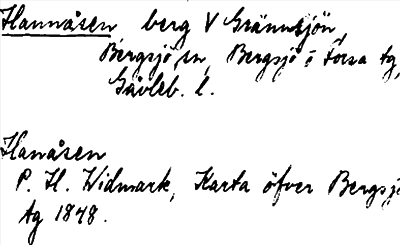 Hannåsen berg V Grännsjön,
Bergsjö sn, Bergsjö o Forsa tg,
Gävleb. l.
Hanåsen
P. H. Widmark, Karta öfver Bergsjö
tg 1848.